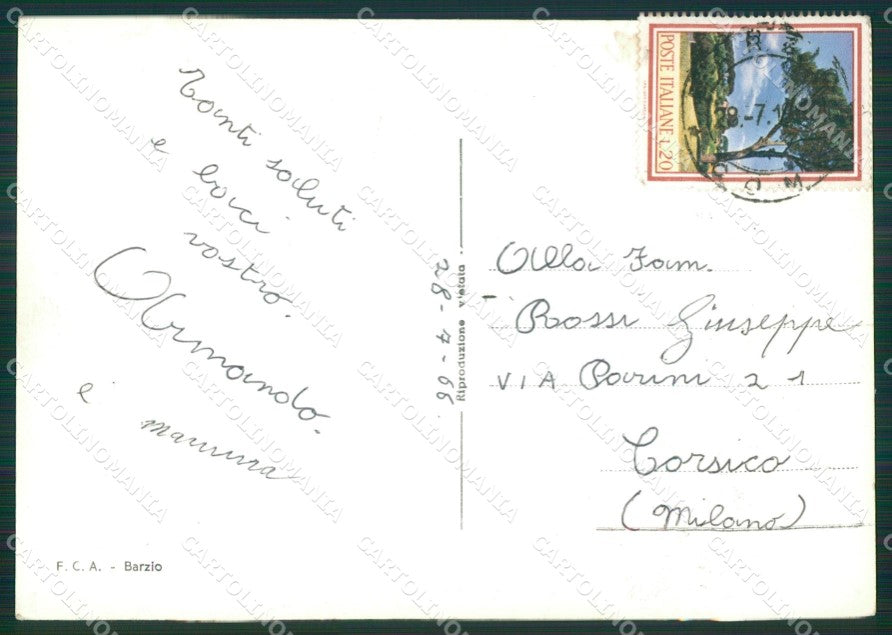 Tanti saluti
e baci
vostro.
Armando.
e mamma
F. C. A. - Barzio
28-7-66
Riproduzione vietata
POSTE ITALIANE L.20
28.-7.1
Alla Fam.
Rossi Giuseppe
VIA Parini 21
Corsico
(Milano)
CARTOLINOMANIA